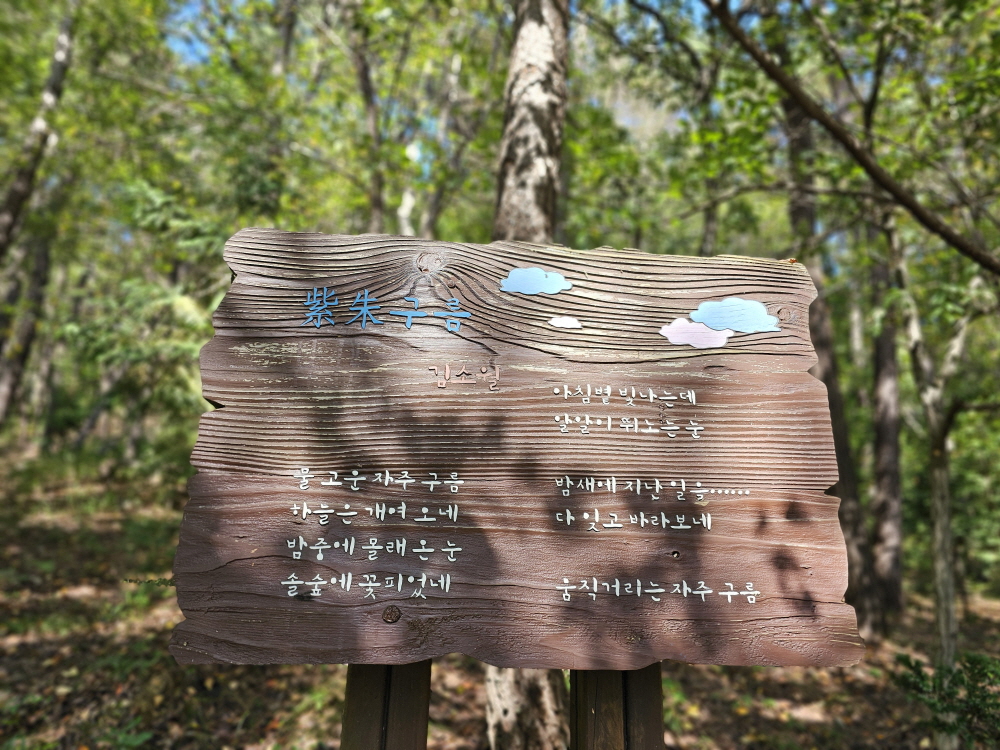 紫朱구름
김소월
물 고운 자주 구름
하늘은 개여 오네
밤중에 몰래 온 눈
솔숲에 꽃피었네
아침볕 빛나는데
알알이 뛰노는 눈
밤새에 지난 일을······
다 잊고 바라보네
움직거리는 자주 구름